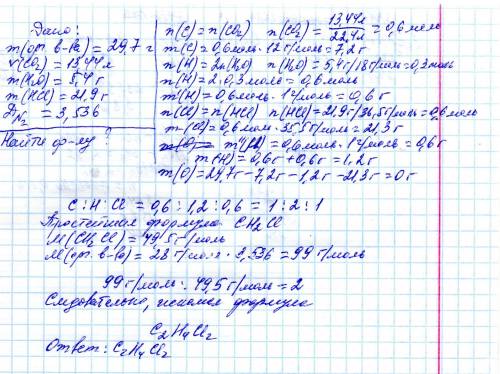 Дано:
m(орг. в-ва) = 29,7 г
V(CO₂) = 13,44 л
m(H₂O) = 5,4 г
m(HCl) = 21,9 г
D N₂ = 3,536
Найти ф-лу?
n(C) = n(CO₂) n(CO₂) = 13,44л / 22,4л = 0,6 моль
m(C) = 0,6 моль · 12 г/моль = 7,2 г
n(H) = 2n(H₂O) n(H₂O) = 5,4 г / 18 г/моль = 0,3 моль
n(H) = 2 · 0,3 моль = 0,6 моль
m(H) = 0,6 моль · 1 г/моль = 0,6 г
n(Cl) = n(HCl) n(HCl) = 21,9 г / 36,5 г/моль = 0,6 моль
m(Cl) = 0,6 моль · 35,5 г/моль = 21,3 г
m'(H) = 0,6 моль · 1 г/моль = 0,6 г
m(H) = 0,6 г + 0,6 г = 1,2 г
m(O) = 29,7 г - 7,2 г - 1,2 г - 21,3 г = 0 г
C : H : Cl = 0,6 : 1,2 : 0,6 = 1 : 2 : 1
Простейшая формула CH₂Cl
M(CH₂Cl) = 49,5 г/моль
M(орг. в-ва) = 28 г/моль · 3,536 = 99 г/моль
99 г/моль : 49,5 г/моль = 2
Следовательно, искомая формула
C₂H₄Cl₂
Ответ: C₂H₄Cl₂